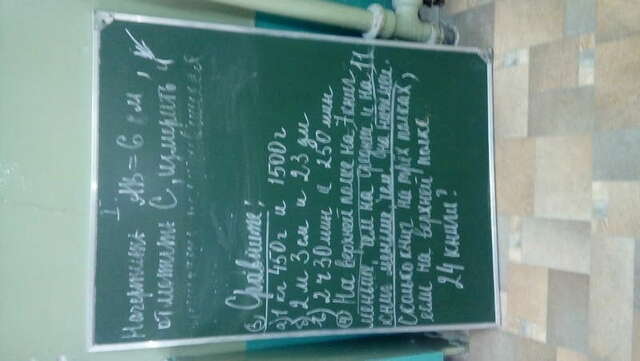 I
Начертить АВ = 6 см,
отметить С, измерить и
3, Сравните:
а) 1 кг 450 г и 1500 г
б) 2 м 3 см и 23 дм
в) 2 ч 30 мин и 250 мин
4) На верхней полке на 7 книг
меньше, чем на средней и на 11
книг меньше, чем на нижней.
Сколько книг на трёх полках,
если на верхней полке
24 книги?